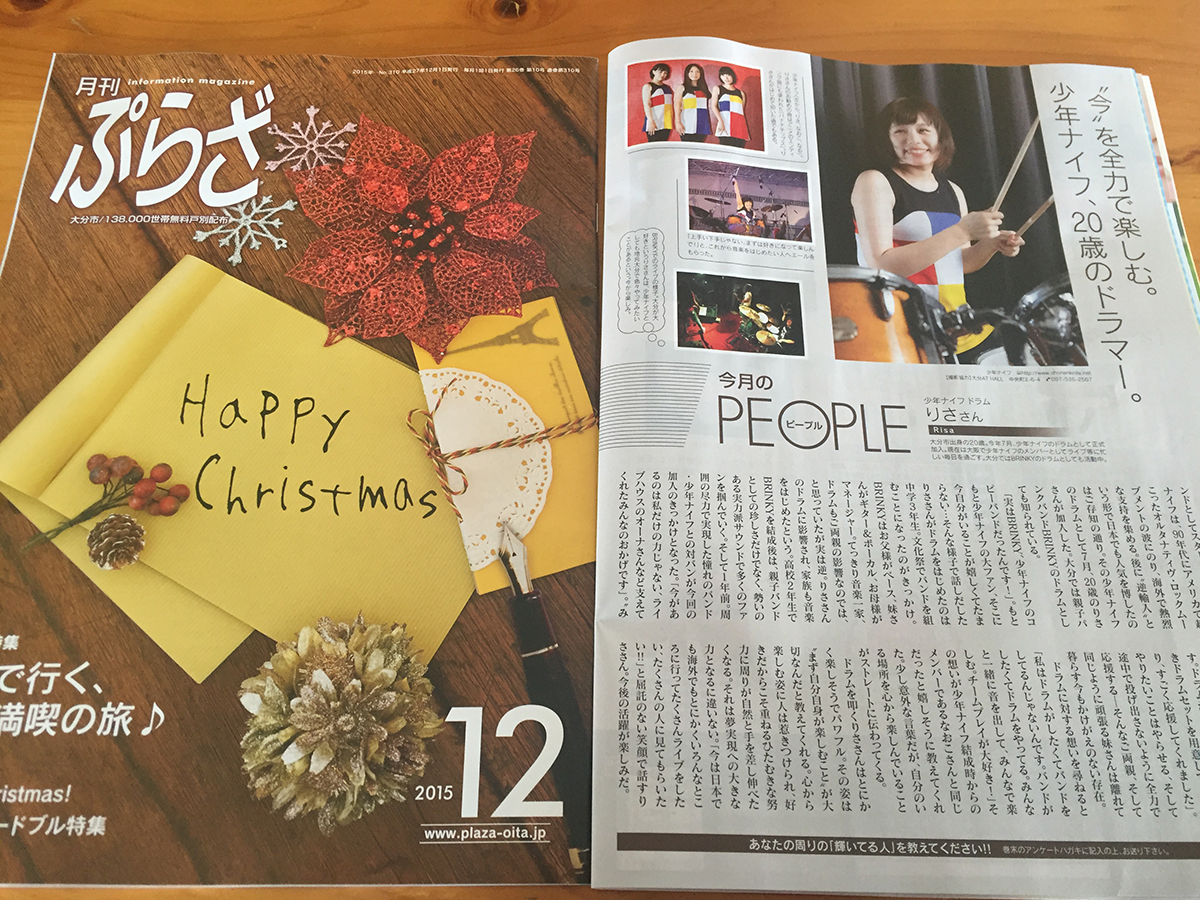 月刊
information magazine
ぷらざ
2015年 No.310 平成27年12月1日発行 毎月1回1日発行 第26巻 第10号 通巻第310号
大分市/138,000世帯無料戸別配布
Happy
Christmas
特集
で行く、
満喫の旅♪
ristmas!
ードブル特集
2015
12
www.plaza-oita.jp
“今”を全力で楽しむ。
少年ナイフ、20歳のドラマー。
「上手い下手じゃない、まずは好きになって楽しん
で!」と、これから音楽をはじめたい人へエールを
もらった。
今月の
PEOPLE
ピープル
少年ナイフ ドラム
りささん
Risa
大分市出身の20歳。今年7月、少年ナイフのドラムとして正式
加入。現在は大阪で少年ナイフのメンバーとしてライブ等に忙
しい毎日を過ごす。大分ではBRINKYのドラムとしても活動中。
ナイフは、90年代にアメリカで起
こったオルタナティヴ・ロックムー
ブメントの波にのり、海外で熱烈
な支持を集める。後に〝逆輸入〟と
いう形で日本でも人気を博したの
はご存知の通り。その少年ナイフ
のドラムとして7月、20歳のりさ
さんが加入した。大分では親子パ
ンクバンドBRINKYのドラムとし
ても知られている。
「実はBRINKY、少年ナイフのコ
ピーバンドだったんです!」。もと
もと少年ナイフの大ファン、そこに
今自分がいることが嬉しくてたま
らない…そんな様子で話しだした
りささんがドラムをはじめたのは
中学3年生。文化祭でバンドを組
むことになったのがきっかけ。
BRINKYはお父様がベース、妹さ
んがギター&ボーカル、お母様が
マネージャー。てっきり音楽一家、
ドラムもご両親の影響なのでは、
と思っていたが実は逆。りささん
のドラムに影響され、家族も音楽
をはじめたという。高校2年生で
BRINKYを結成後は、親子バンド
としての珍しさだけでなく、勢いの
ある実力派サウンドで多くのファ
ンを掴んでいく。そして1年前。周
囲の尽力で実現した憧れのバンド
・少年ナイフとの対バンが今回の
加入のきっかけとなった。「今があ
るのは私だけの力じゃない、ライ
ブハウスのオーナさんなど支えて
くれたみんなのおかげです」。〝み
きドラムセットを用意し
り、すごく応援してくれました」。
やりたいことはやらせる、そして
途中で投げ出さないように全力で
応援する…そんなご両親、そして
同じように頑張る妹さんは離れて
暮らす今もかけがえのない存在。
ドラムに対する想いを尋ねると
「私はドラムがしたくてバンドを
してるんじゃないんです。バンドが
したくてドラムをやってる。みんな
と一緒に音を出して、みんなで楽
しむ、チームプレイが大好き!」そ
の想いが少年ナイフ結成時からの
メンバーであるなおこさんと同じ
だったと嬉しそうに教えてくれ
た。少し意外な言葉だが、自分のい
る場所を心から楽しんでいること
がストレートに伝わってくる。
ドラムを叩くりささんはとにか
く楽しそうでパワフル。その姿は
〝まず自分自身が楽しむこと〟が大
切なんだと教えてくれる。心から
楽しむ姿に人は惹きつけられ、好
きだからこそ重ねるひたむきな努
力に周りが自然と手を差し伸べた
くなる。それは夢実現への大きな
力となるに違いない。「今は日本で
も海外でもとにかくいろんなとこ
ろに行ってたくさんライブをした
い、たくさんの人に見てもらいた
い!!」と屈託のない笑顔で話すり
ささん。今後の活躍が楽しみだ。
あなたの周りの「輝いてる人」を教えてください!! 巻末のアンケートハガキに記入の上、お送り下さい。